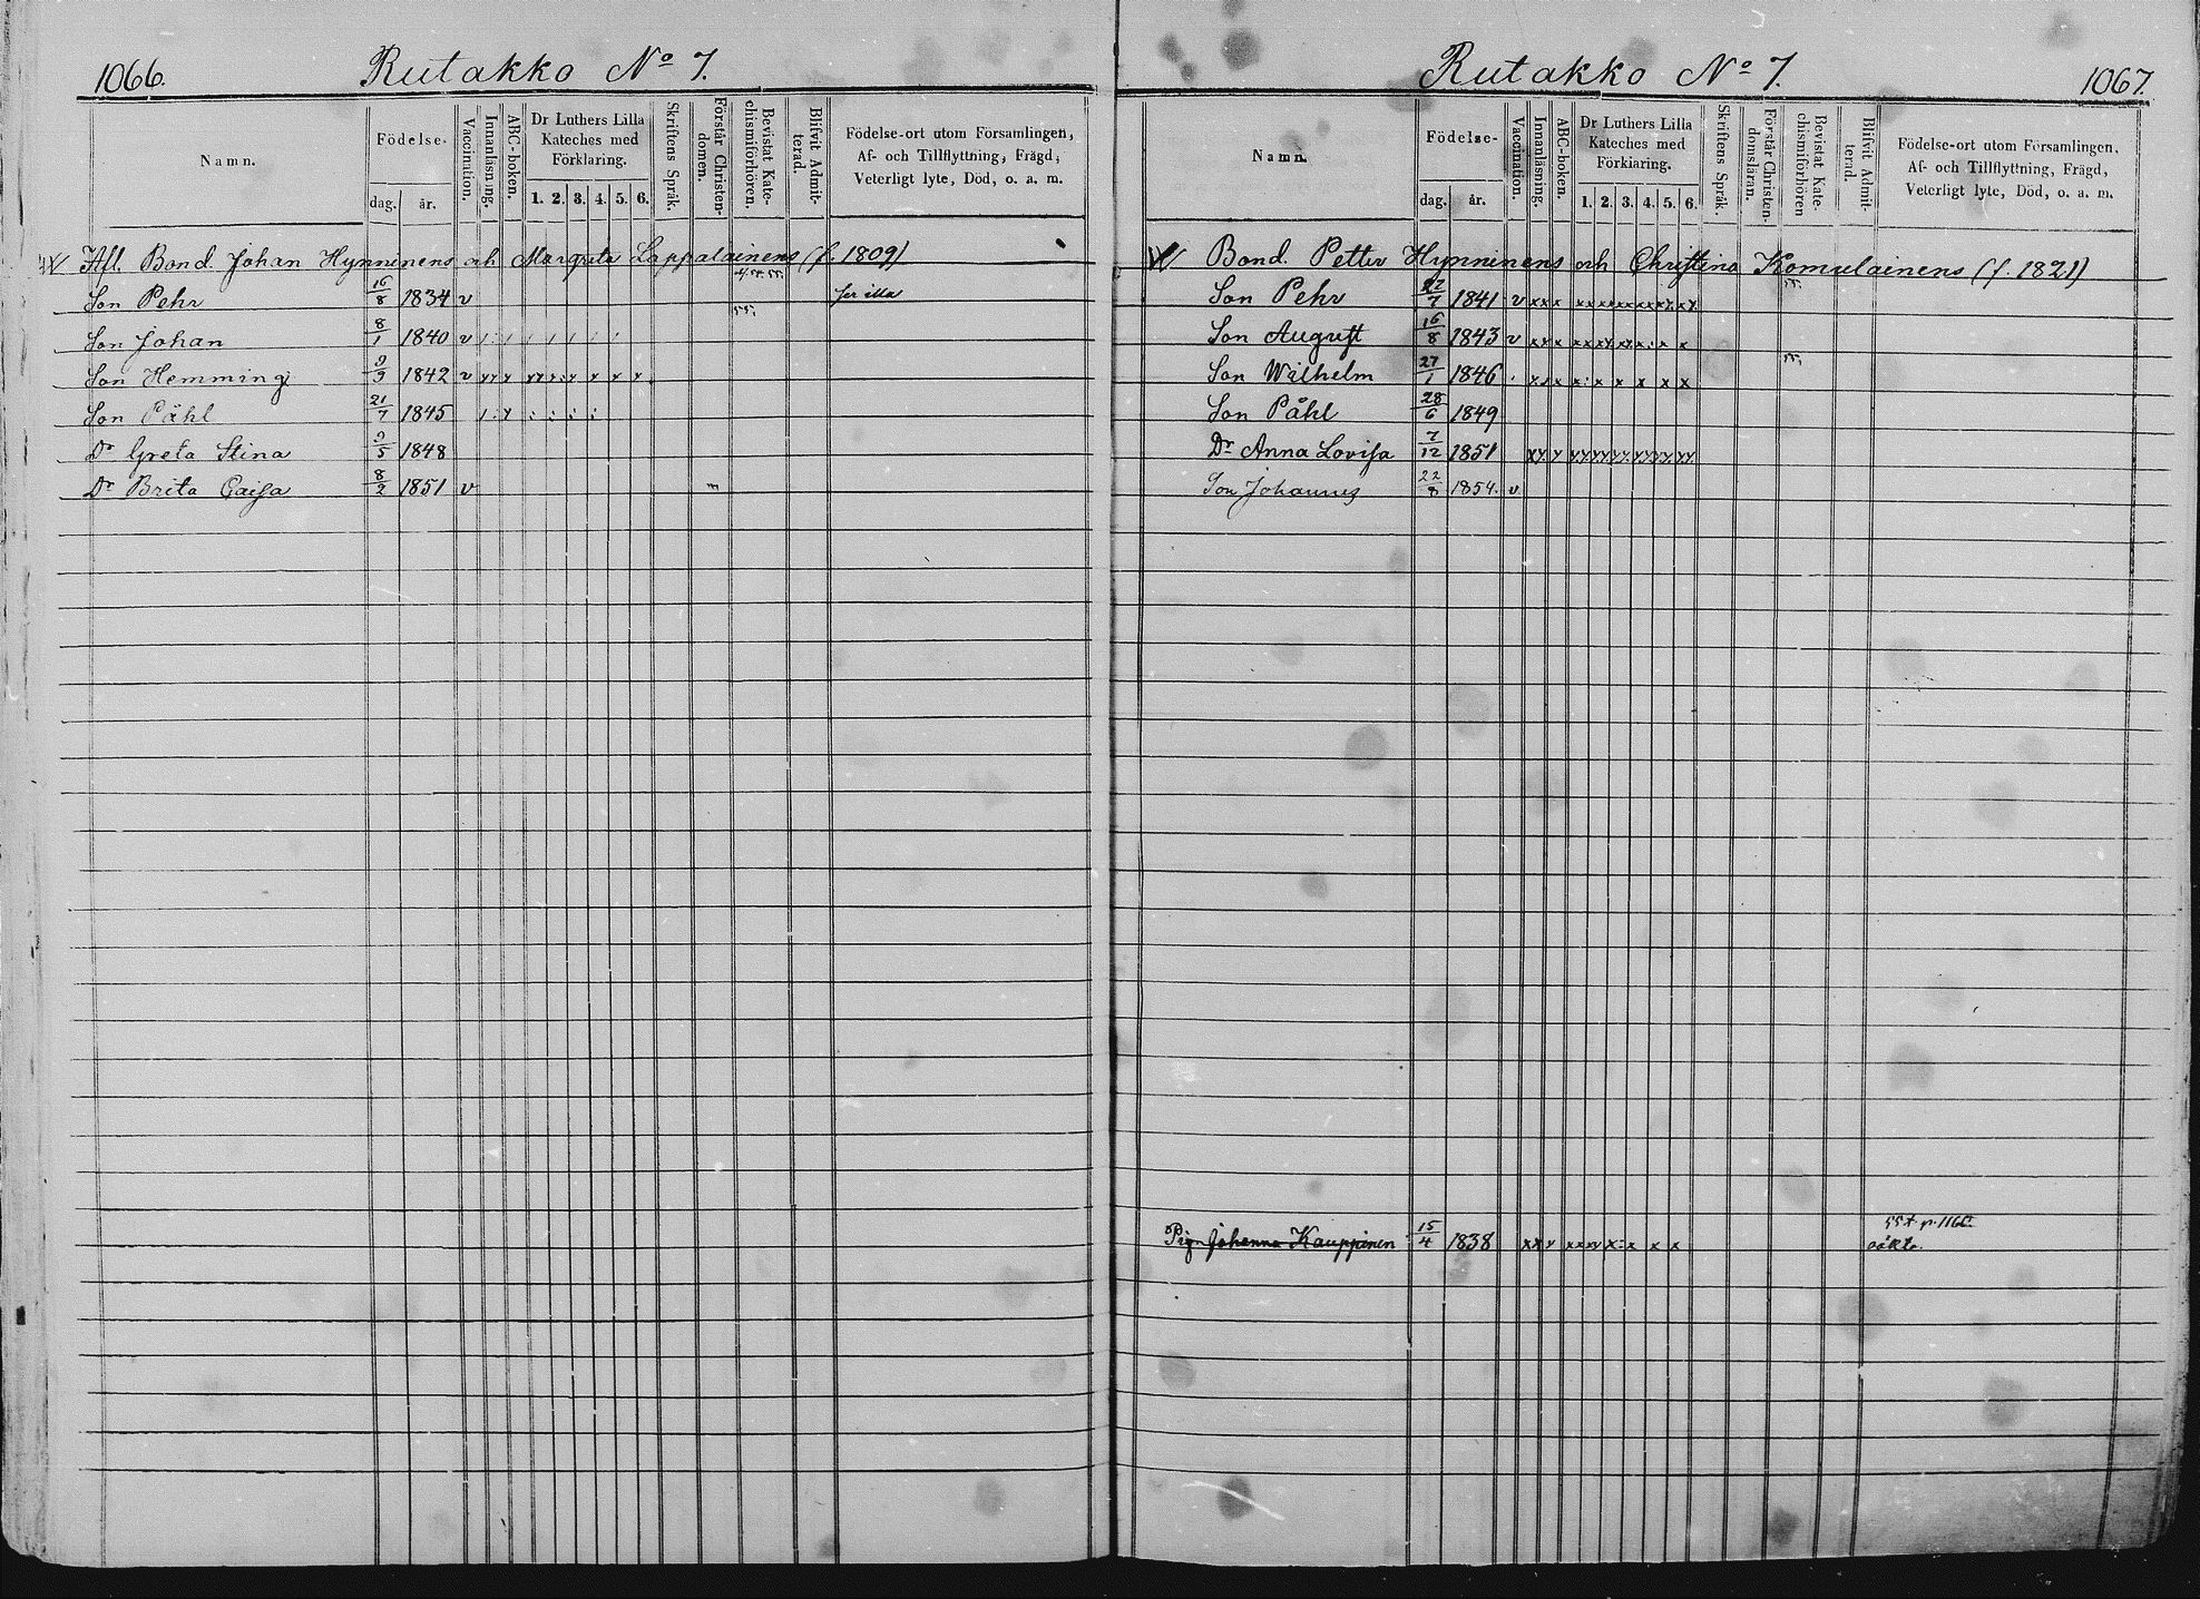 1066. Rutakko No 7.
Namn.
Födelse-
dag. år.
Vaccination.
Innanläsning.
ABC-boken.
Dr Luthers Lilla
Kateches med
Förklaring.
1. 2. 3. 4. 5. 6.
Skriftens Språk.
Förstår Christen-
domen.
Bevistat Kate-
chismiförhören.
Blifvit Admit-
terad.
Födelse-ort utom Församlingen,
Af- och Tillflyttning, Frägd,
Veterligt lyte, Död, o. a. m.
Afl. Bond. Johan Hynninens och Margreta Lappalainens (f. 1809)
Son Pehr 16/8 1834 v 54. 55. ser illa
Son Johan 8/1 1840 v 55.
Son Hemming 9/9 1842 v
Son Påhl 21/7 1845
Dr Greta Stina 9/5 1848
Dr Brita Caisa 8/2 1851 v
Rutakko No 7. 1067.
Namn.
Födelse-
dag. år.
Vaccination.
Innanläsning.
ABC-boken.
Dr Luthers Lilla
Kateches med
Förklaring.
1. 2. 3. 4. 5. 6.
Skriftens Språk.
Förstår Christen-
domsläran.
Bevistat Kate-
chismiförhören
Blifvit Admit-
terad.
Födelse-ort utom Församlingen,
Af- och Tillflyttning, Frägd,
Veterligt lyte, Död, o. a. m.
Bond. Petter Hynninens och Christina Komulainens (f. 1821)
Son Pehr 22/7 1841 v x x x 55.
Son August 16/8 1843 v x x x
Son Wilhelm 27/1 1846 x x x 55.
Son Påhl 28/6 1849
Dr Anna Lovisa 7/12 1851
Son Johannes 22/8 1854. v
55 t. p. 1160
Pign Johanna Kauppinen 15/4 1838 x x x